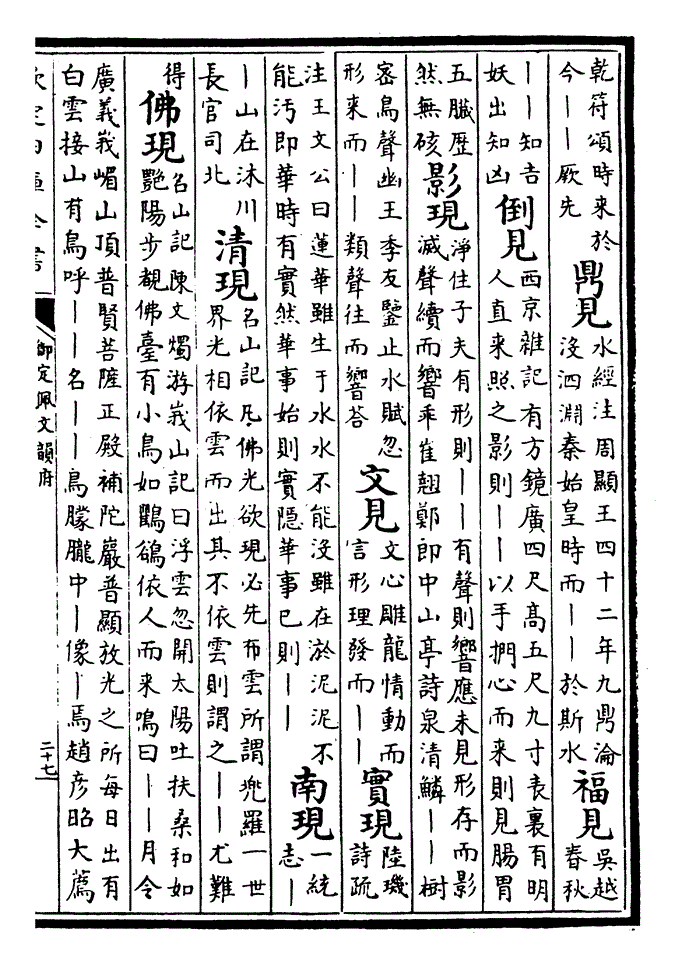 乾符頌時来於
今——厥先
鼎見
水經注周顯王四十二年九鼎淪
沒泗淵秦始皇時而——於斯水
福見
吳越
春秋
——知吉
妖出知凶
倒見
西京雜記有方鏡廣四尺高五尺九寸表裏有明
人直来照之影則——以手捫心而来則見腸胃
五臓歴
然無硋
影現
淨住子夫有形則——有聲則響應未見形存而影
滅聲續而響乖崔翹鄭郎中山亭詩泉清鱗——樹
密鳥聲幽王季友鑒止水賦忽
形来而——類聲往而響荅
文見
文心雕龍情動而
言形理發而——
實現
陸璣
詩疏
注王文公曰蓮華雖生于水水不能沒雖在淤泥泥不
能汚即華時有實然華事始則實隠華事已則——
南現
一統
志—
—山在沐川
長官司北
清現
名山記凡佛光欲現必先布雲所謂兜羅一世
界光相依雲而出其不依雲則謂之——尤難
得
佛現
名山記陳文燭游峩山記曰浮雲忽開太陽吐扶桑和如
艷陽步覩佛臺有小鳥如鸜鵒依人而来鳴曰——月令
廣義峩嵋山頂普賢菩薩正殿補陀巖普顯放光之所每日出有
白雲接山有鳥呼——名——鳥朦朧中—像—焉趙彦昭大薦
欽定四庫全書
御定佩文韻府
二十七